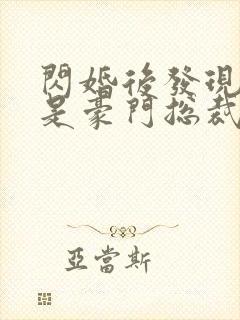 閃婚後發現
是豪門總裁
亞當斯